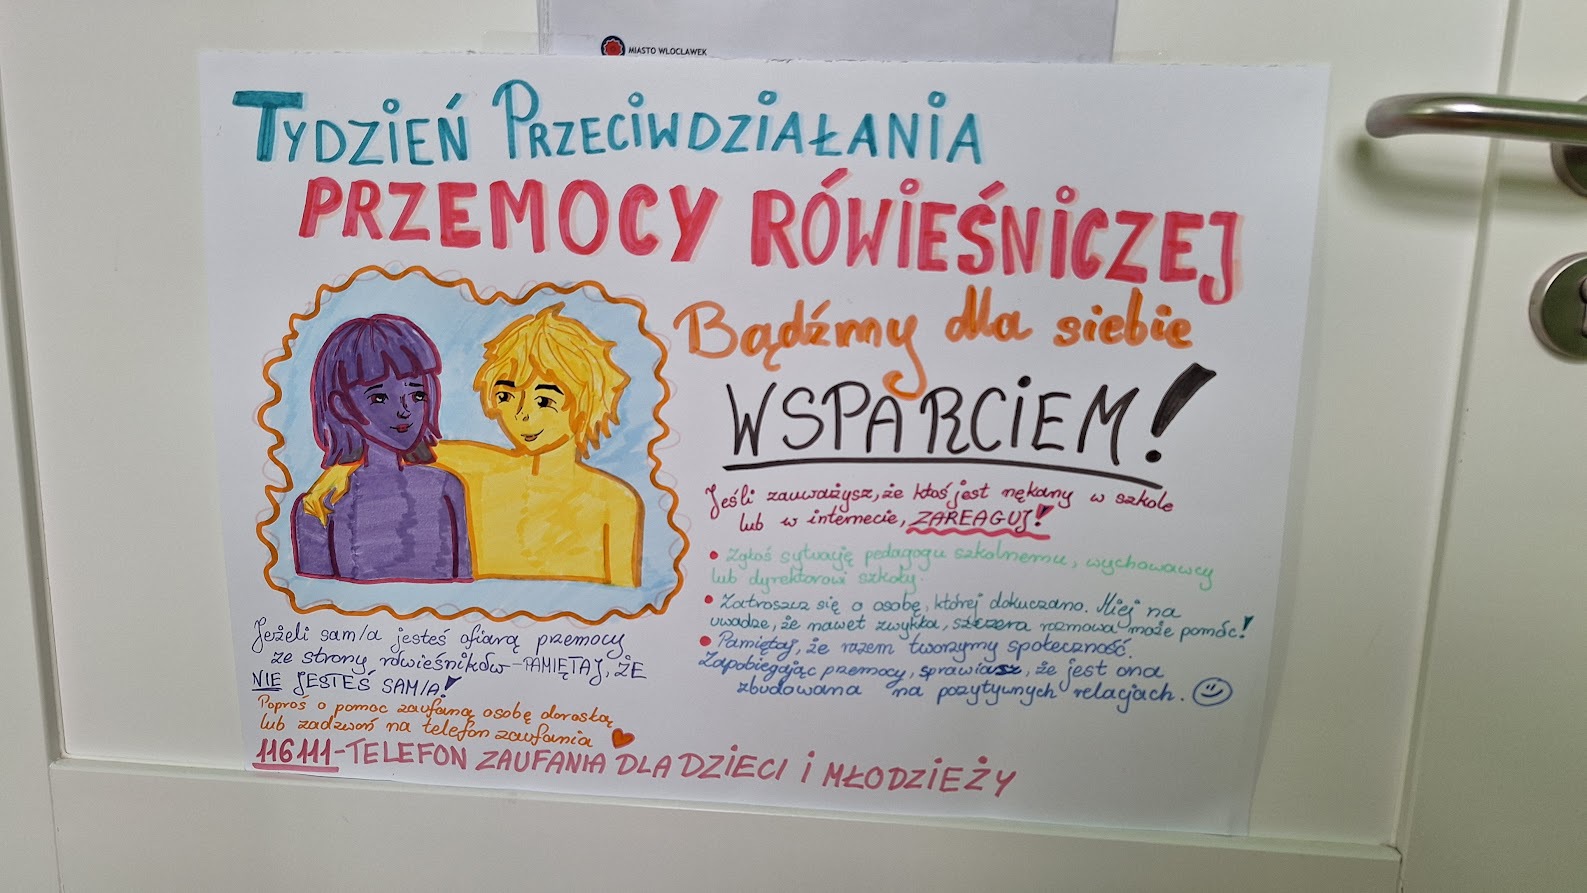 MIASTO WŁOCŁAWEK
TYDZIEŃ PRZECIWDZIAŁANIA
PRZEMOCY RÓWIEŚNICZEJ
Bądźmy dla siebie
WSPARCIEM!
Jeśli zauważysz, że ktoś jest nękany w szkole
lub w internecie, ZAREAGUJ!
• Zgłoś sytuację pedagogu szkolnemu, wychowawcy
lub dyrektorowi szkoły.
• Zatroszcz się o osobę, której dokuczano. Miej na
uwadze, że nawet zwykła, szczera rozmowa może pomóc!
• Pamiętaj, że razem tworzymy społeczność.
Zapobiegając przemocy, sprawiasz, że jest ona
zbudowana na pozytywnych relacjach.
Jeżeli sam/a jesteś ofiarą przemocy
ze strony rówieśników-PAMIĘTAJ, ŻE
NIE JESTEŚ SAM/A!
Poproś o pomoc zaufaną osobę dorosłą
lub zadzwoń na telefon zaufania
116111-TELEFON ZAUFANIA DLA DZIECI I MŁODZIEŻY